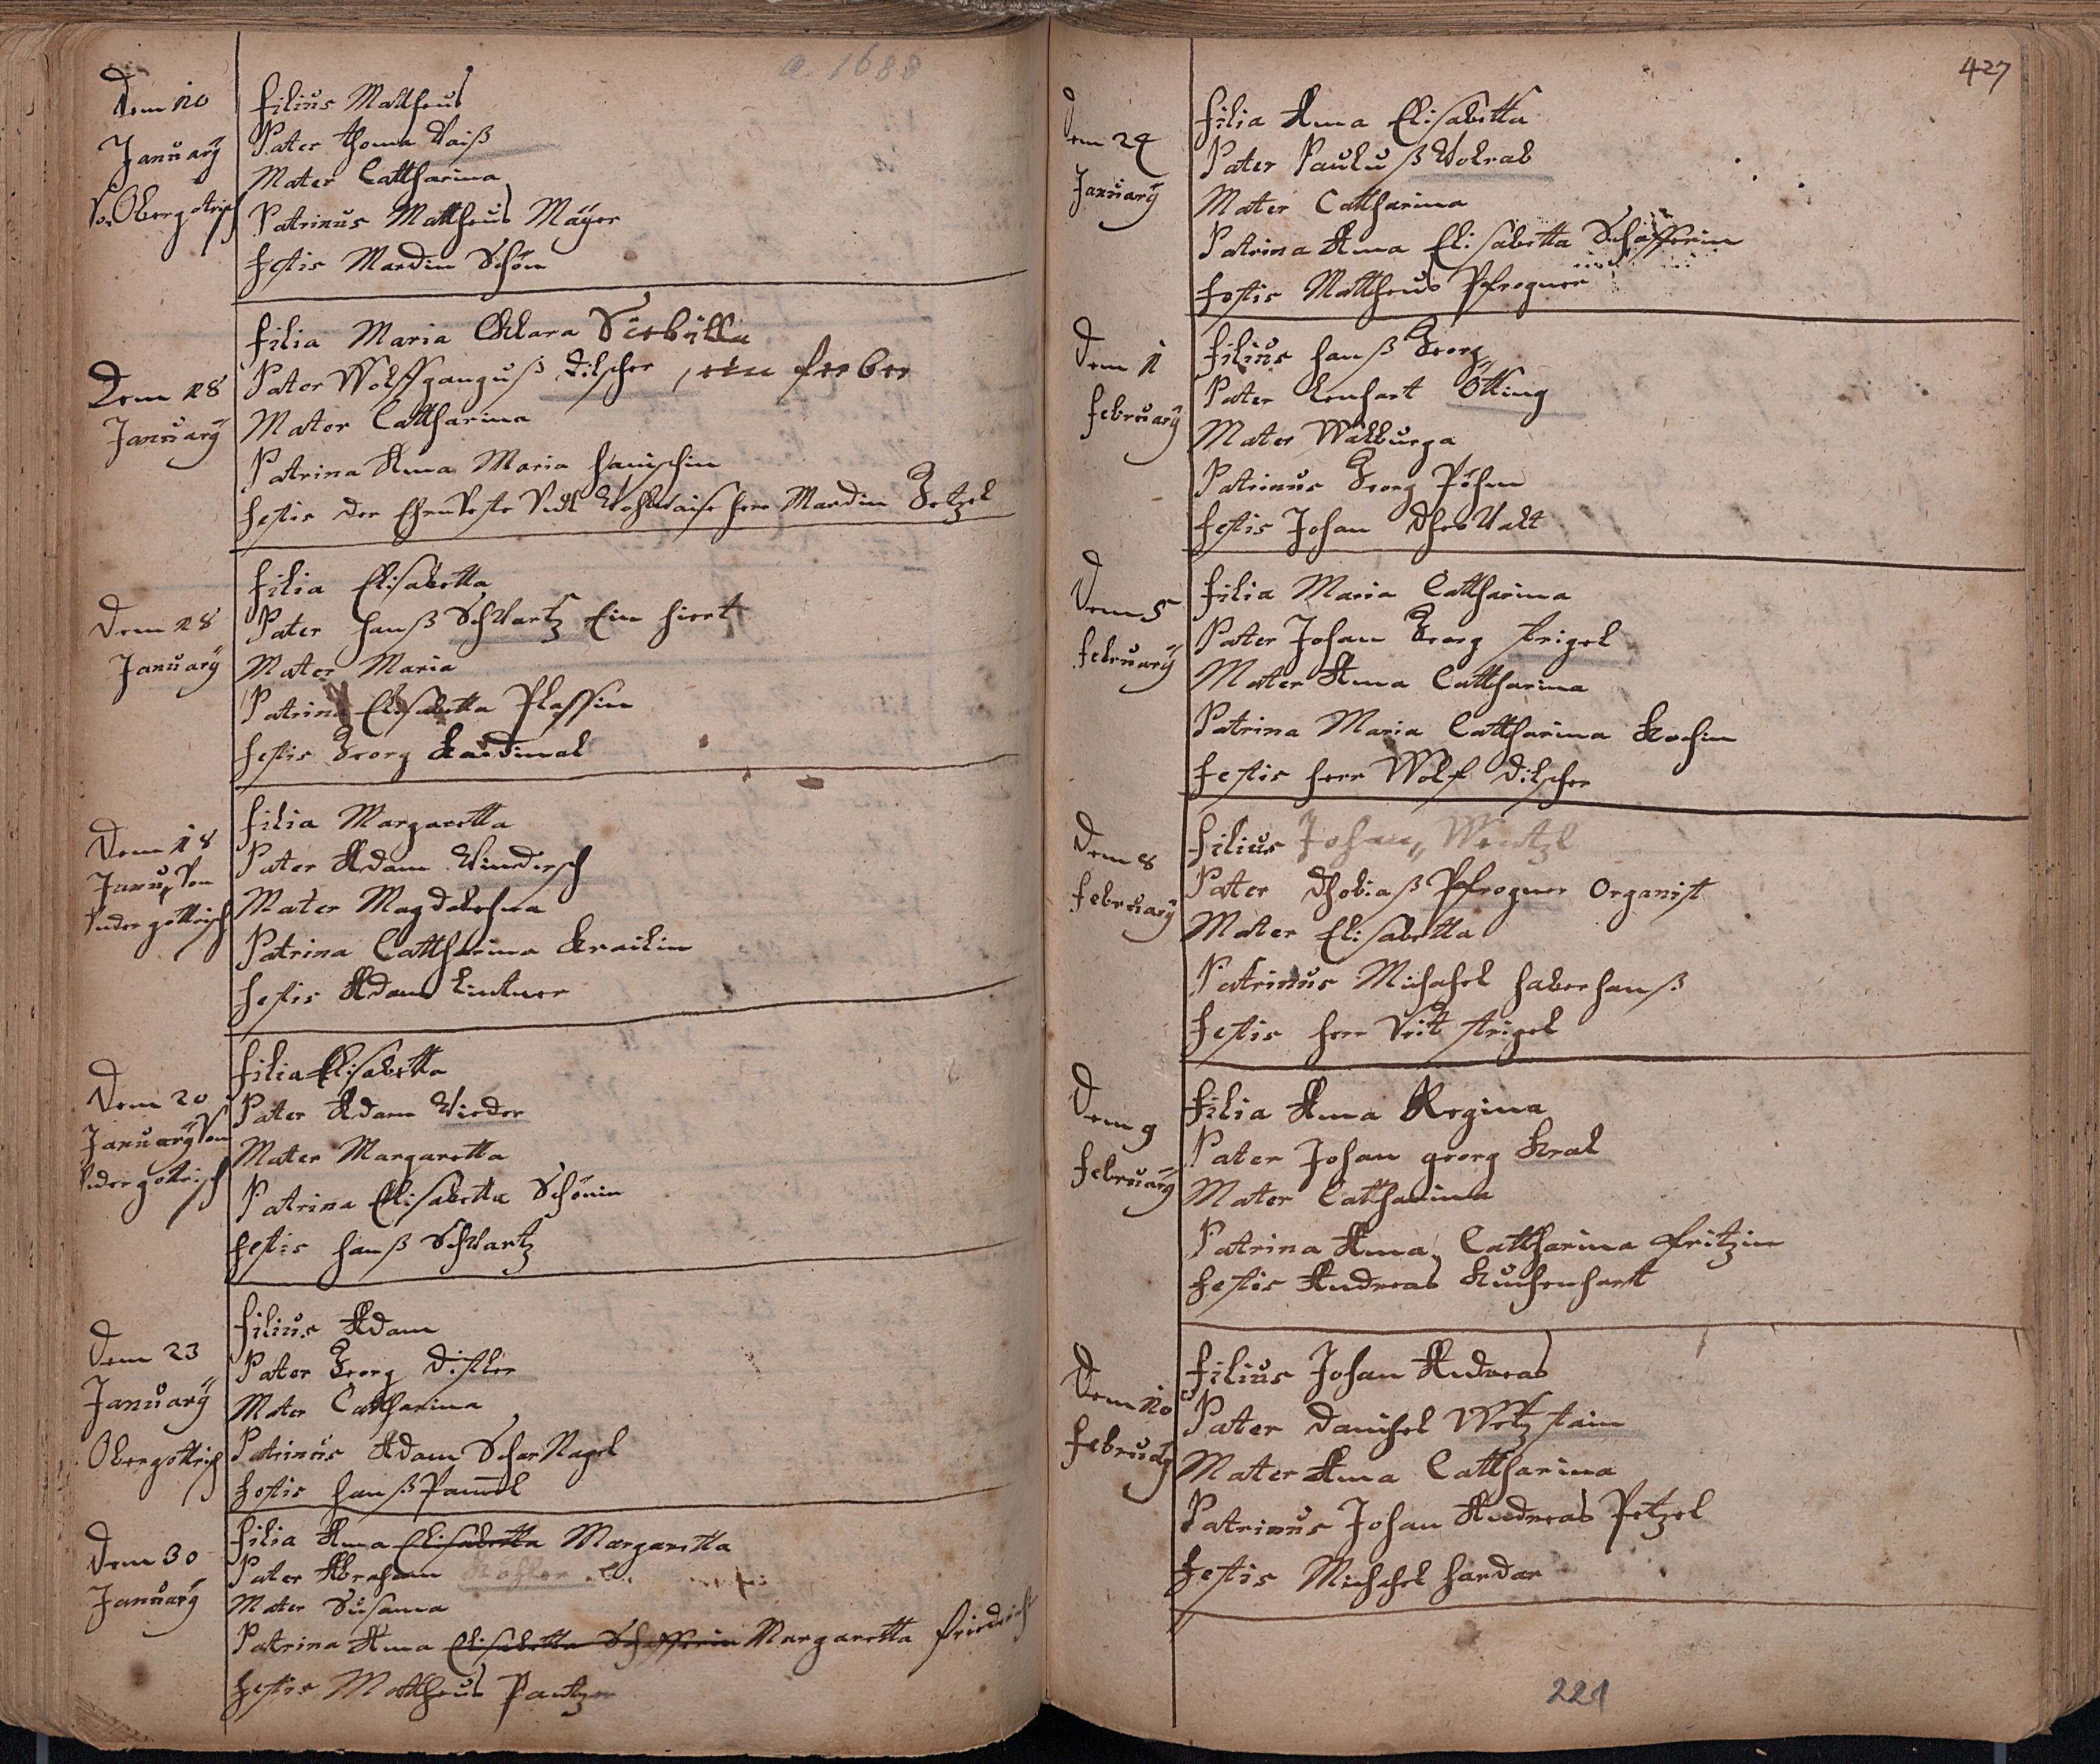 a. 1688
Dem 10
January
Von Obergotrisch
filius Mattheus
Pater thoma Vaiß
Mater Cattharina
Patrinus Mattheus Mäyer
testis Mardin Schön
Dem 18
January
filia Maria Cklara
Pater Wolffganguß Dilscher, ein ferber
Mater Cattharina
Patrina Anna Maria
testis der Ehrnveste Herr Mardin
Dem 18
January
filia Elisabetta
Pater Hanß Schwartz Ein Hiert
Mater Maria
Patrina Elisabetta Plassin
testis Georg Kardinal
Dem 18
Janu. Von
Undergottrisch
filia Margaretta
Pater Adam
Mater Magdalehna
Patrina Cattharina Krailin
testis Adam Lintner
Dem 20
January Von
Undergottrisch
filia Elisabetta
Pater Adam Vieder
Mater Margaretta
Patrina Elisabetta Schönin
testis Hanß Schwartz
Dem 23
January
Obergottrisch
filius Adam
Pater Georg Distler
Mater Cattharina
Patrinus Adam Schar Nagel
testis Hanß
Dem 30
January
filia Anna Elisabetta Margaretta
Pater Abraham Kohler
Mater Susanna
Patrina Anna Elisabetta Schefferin Margaretta
testis Mattheus
427
Dem 24
January
filia Anna Elisabetta
Pater Pauluß Wolrab
Mater Cattharina
Patrina Anna Elisabetta Schäfferin
testis Mattheus Pfrogner
Dem 1
february
filius Hanß Georg
Pater Lenhart Ötting
Mater Walburga
Patrinus Georg Pöhm
testis Johan
Dem 5
february
filia Maria Cattharina
Pater Johan Georg strigel
Mater Anna Cattharina
Patrina Maria Cattharina Kochin
testis Herr Wolf Dilscher
Dem 8
february
filius Johan Wentzl
Pater Thobiaß Pfrogner Organist
Mater Elisabetta
Patrinus Michahel Haberhanß
testis Herr Veit strigel
Dem 9
february
filia Anna Regina
Pater Johan georg Kral
Mater Cattharina
Patrina Anna Cattharina fritzin
testis Andreas Kuchenhart
Dem 10
february
filius Johan Andreas
Pater Danihel Wetzstain
Mater Anna Cattharina
Patrinus Johan Andreas Petzel
testis Michahel Hardar
221